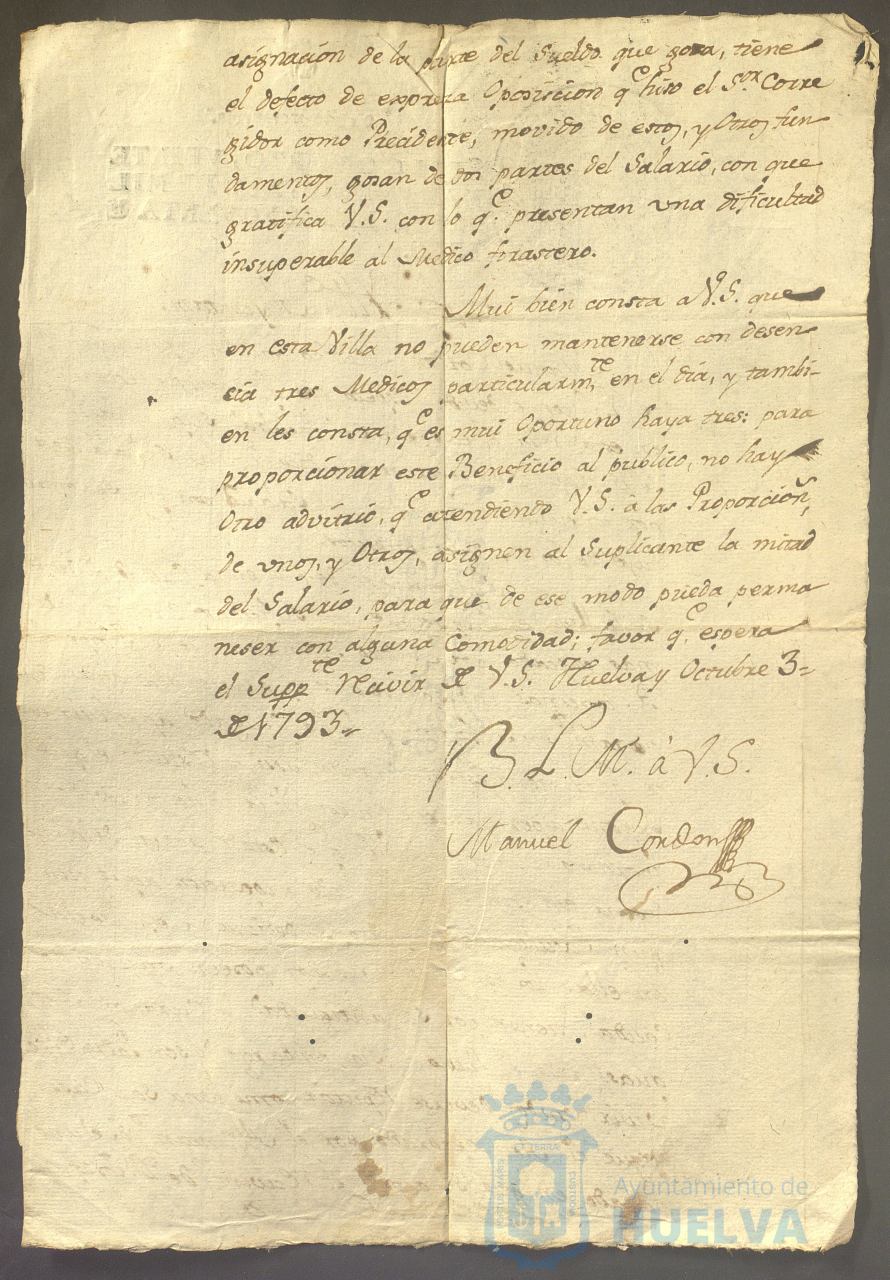 asignación de la parte del Sueldo que goza, tiene
el defecto de expresa Oposicion qe. hiso el Sor. Corre
gidor como Precidente, movido de estos, y Otros fun
damentos, gosan de dos partes del Salario, con que
gratifica V.S. con lo qe. presentan una dificultad
insuperable al Medico forastero.
Mui bien consta a V.S. que
en esta Villa no pueden mantenerse con desen
cia tres Medicos particularmte. en el dia, y tambi-
en les consta, qe. es mui Oportuno haya tres: para
proporcionar este Beneficio al publico, no hay
Otro advitrio, qe. atendiendo V.S. à las Proporcion,
de unos, y Otros, asignen al Suplicante la mitad
del Salario, para que de ese modo pueda perma
neser con alguna Comodidad; favor qe. espera
el Suppte. de V.S. Huelva y Octubre 3-
de 1793-
B. L. M. à V.S.
Manuel Cordon
PORTUS MARIS
ET TERRÆ
CUSTODIA
Ayuntamiento de
HUELVA